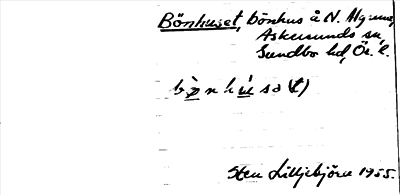 Bönhuset, bönhus å N. Algrena,
Askersunds sn,
Sundbo hd, Ör. l.
bönhúsa(t)
Sten Lilljebjörn 1955.